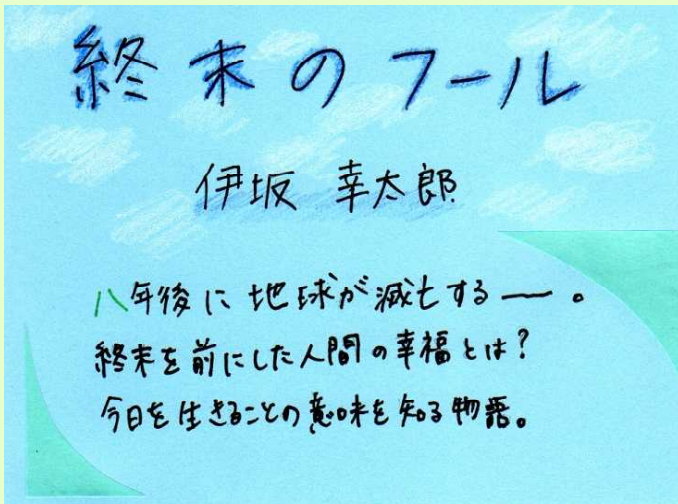 終末のフール
伊坂 幸太郎
八年後に地球が滅亡する――。
終末を前にした人間の幸福とは?
今日を生きることの意味を知る物語。